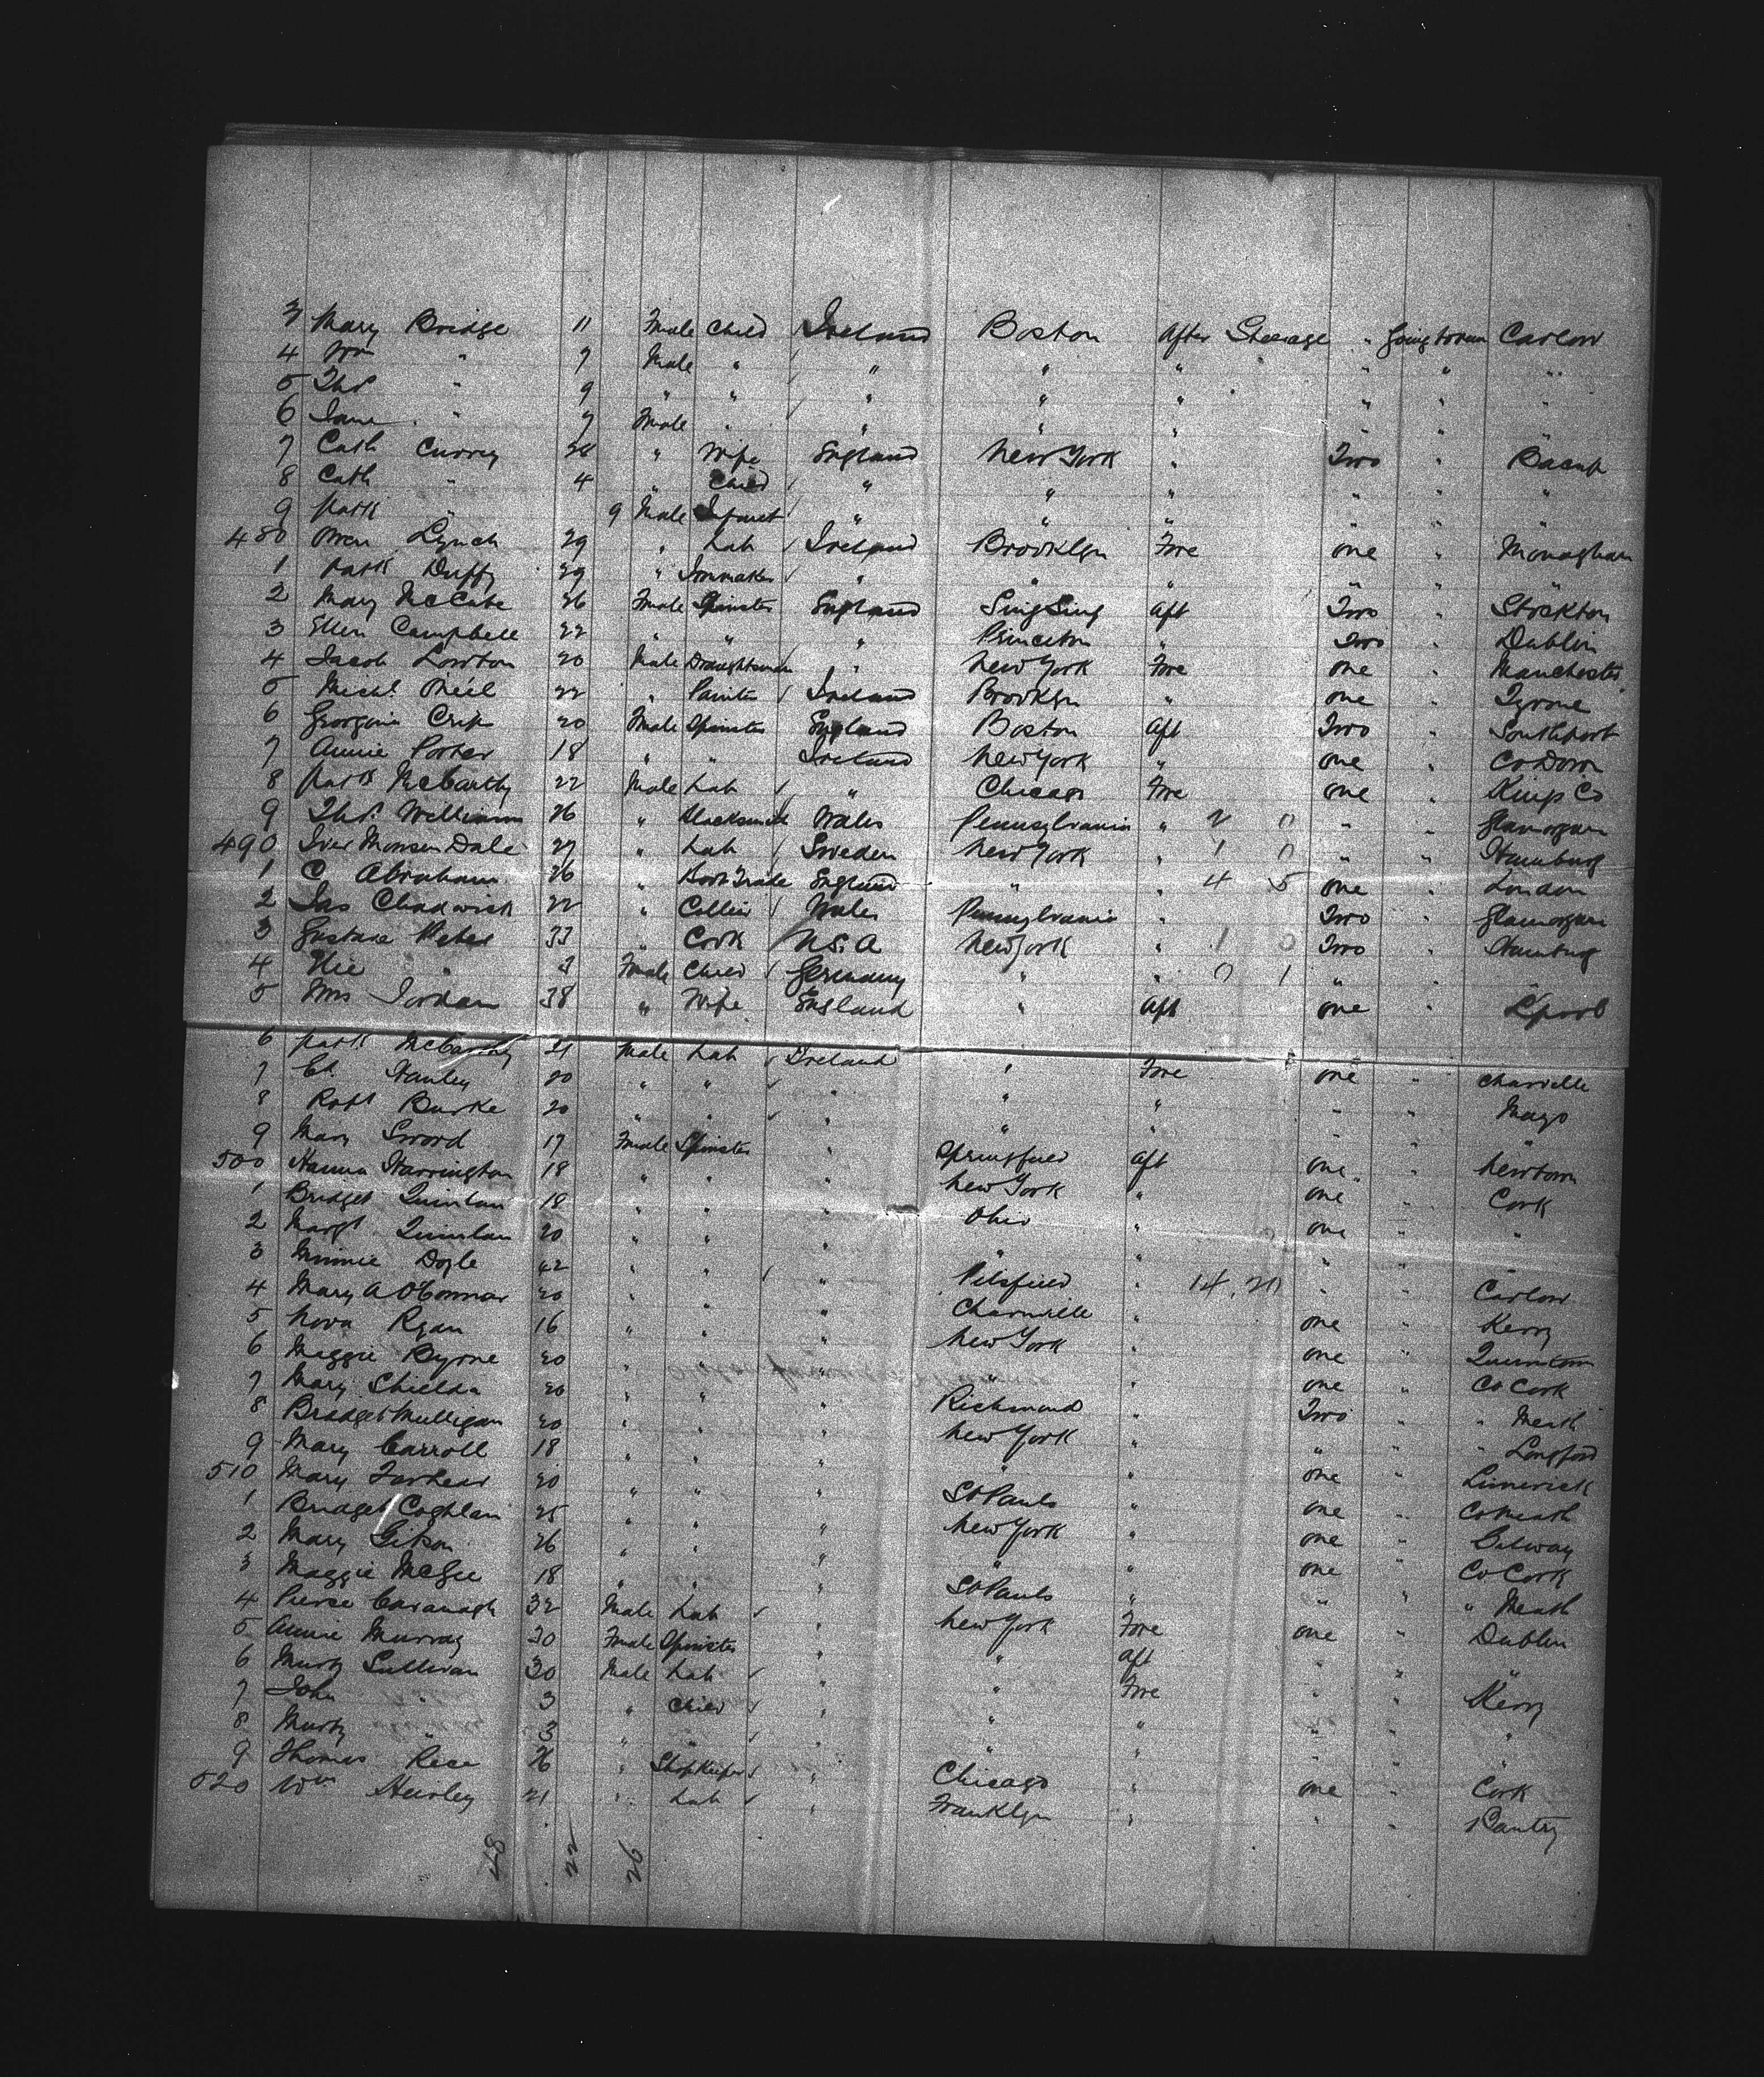 3 Mary Bridge 11 Fmale Child Ireland Boston After Steerage " Going to rem Carlow
4 Wm " 7 Male " " " " " " "
5 Thos " 9 " " " " " " " "
6 Jane " 7 Fmale " " " " " " "
7 Cath Curry 28 " Wife England New York " Two " Bacup
8 Cath " 4 " Child " " " " " "
9 Patk " 9 Male Infant " " " " " "
480 Owen Lynch 29 " Lab Ireland Brooklyn Fore one " Monaghan
1 Patk Duffy 29 " " " " " " "
2 Mary McCabe 26 Fmale Spinster England Sing Sing Aft Two " Stockton
3 Ellen Campbell 22 " " " Princeton " Two " Dublin
4 Jacob Lowton 20 Male Draughtsman " New York Fore one " Manchester
5 Michl Oneil 22 " Painter Ireland Brooklyn " one " Tyrone
6 Georgina Crip 20 Fmale Spinster England Boston Aft Two " Southport
7 Annie Porter 18 " " Ireland New York " one " Co Down
8 Patk McCarthy 22 Male Lab " Chicago Fore one " Kings Co
9 Thos. Williams 26 " Blacksmith Wales Pennsylvania " 2 0 " " Glamorgan
490 Iver Monsen Dale 27 " Lab Sweden New York " 1 0 " " Hamburg
1 C Abraham 26 " Book Trade England " " 4 5 one " London
2 Jas Chadwick 22 " Collier Wales Pennsylvania " Two " Glamorgan
3 Gustave Weber 33 " Cook U.S.A New York " 1 0 Two " Hamburg
4 " 3 Fmale Child Germany " " 0 1 " "
5 Mrs Jordan 38 " Wife England " Aft one " L'pool
6 Patk McCarthy 21 Male Lab Ireland " Fore one " Charville
7 Hanley 20 " " " " " " " Mayo
8 Robt Burke 20 " " " " " " " "
9 Mary Sword 17 Fmale Spinster " Springfield Aft one " Newtown
500 Hanna Harrington 18 " " " New York " one " Cork
1 Bridget Quinlan 18 " " " Ohio " one " "
2 Margt Quinlan 20 " " " " " " " "
3 Minnie Doyle 42 " " " Pitsfield " 14, 20 " " Carlow
4 Mary A O'Connor 20 " " " Charville " one " Kerry
5 Nora Ryan 16 " " " New York " one "
6 Maggie Byrne 20 " " " " " one " Co Cork
7 Mary Shields 20 " " " Richmond " Two " " Meath
8 Bridget Mulligan 20 " " " New York " " " " Longford
9 Mary Carroll 18 " " " " " one " Limerick
510 Mary 20 " " " St Pauls " one " Co Meath
1 Bridget Coghlan 25 " " " New York " one " Galway
2 Mary Gibson 26 " " " " " one " Co Cork
3 Maggie McGee 18 " " " St Pauls " " " " Meath
4 Pierce Cavanagh 32 Male Lab " New York Fore one " Dublin
5 Annie Murray 30 Fmale Spinster " " Aft " " "
6 Murty Sullivan 30 Male Lab " " Fore " " Kerry
7 John " 3 " Child " " " " " "
8 Murty " 3 " " " " " " " "
9 Thomas Rice 26 " Shopkeeper " Chicago " one " Cork
520 Wm Hurley 21 " Lab " Franklyn " " " Bantry
48 22 26